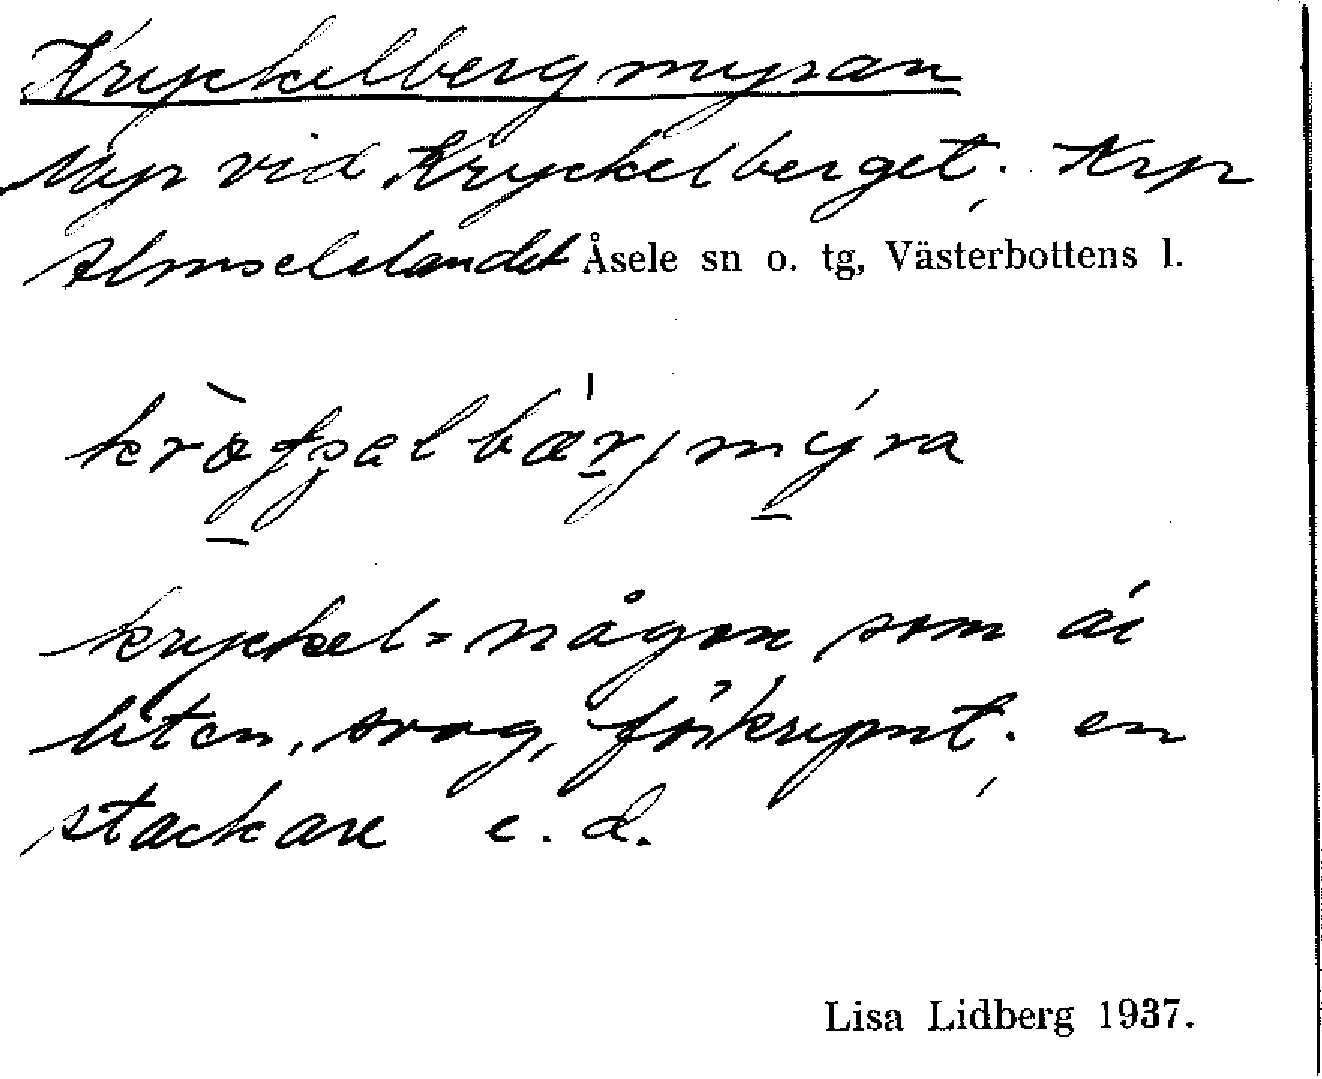 Kryckelbergmyran
Myr vid Kryckelberget; Krp
Almselelandet Åsele sn o. tg, Västerbottens l.
kryckel = någon som är
liten, svag, förkrympt; en
stackare e. d.
Lisa Lidberg 1937.